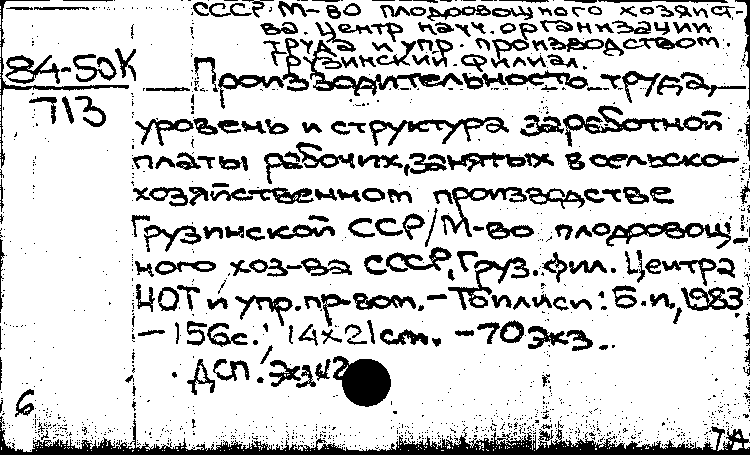 СССР. М-во плодоовощного хозяйст-
ва. Центр науч. организации
труда и упр. производством.
Грузинский филиал.
84-50К
713
Производительность труда,
уровень и структура заработной
платы рабочих, занятых в сельско-
хозяйственном производстве
Грузинской ССР/М-во плодоовощ-
ного хоз-ва СССР, Груз. фил. Центра
НОТ и упр. пр-вом. - Тбилиси: Б.и., 1983
- 156с.; 14х21см. - 70 экз.
ДСП. Экз N2
6
ТА